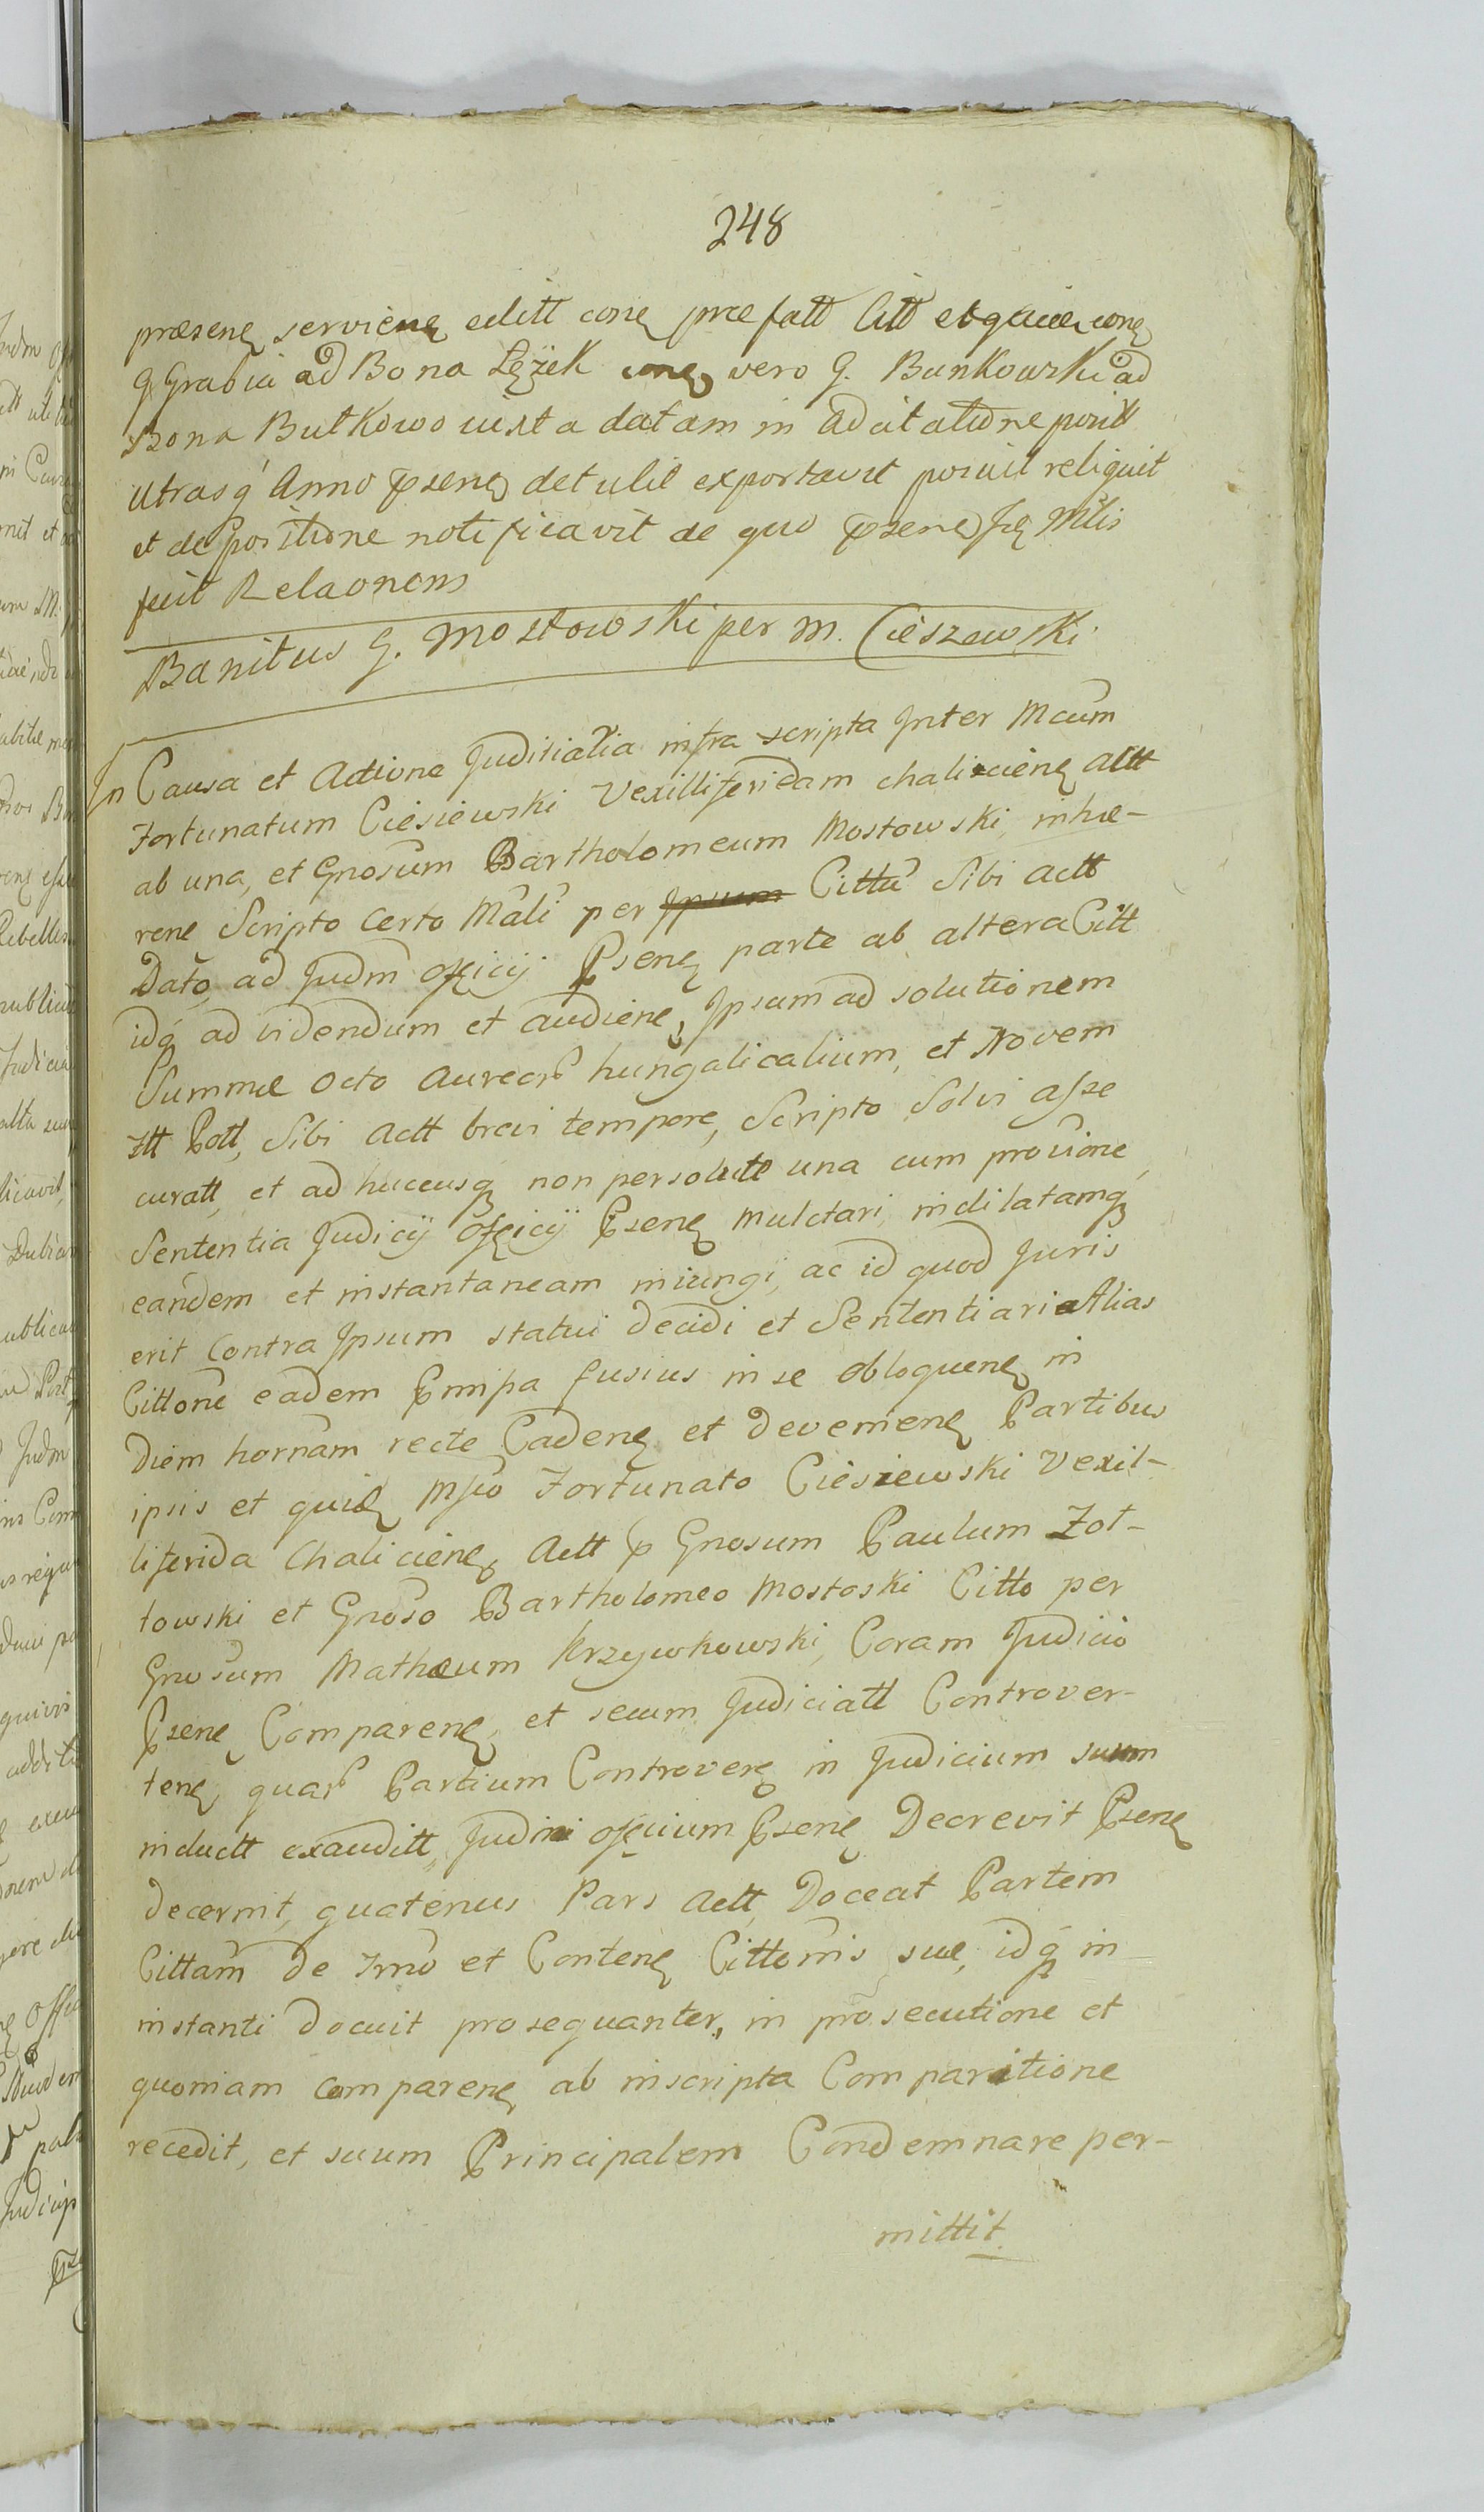 248
præsenę servienę editt conę præfatt Citt et quid conę
G. Grabia ad Bona Lężek conę vero G. Bunkowski ad
Bona Butkowo iuxta datam in adcitatione posit
utrasq́ Anno Psenę detulit exportavit posuit reliquit
et de positione notificavit de quo Psenę Mltis
fecit Relaonem
Banitus G. Mostowski per M. Cieszewski
In Causa et Actione Judiciaria infra scripta Inter Mcum
Fortunatum Ciesiewski Vexilliferidam chalicienę Actt
ab una, et Gnosum Bartholomeum Mostowski, inhæ-
rene Scripto certo Mãli per Ipsum Cittũ Sibi Actt
Dato, ad Judm Officij Psenę parte ab altera Citt
idq́ ad videndum et audienę, Ipsum ad solutionem
Summæ Octo Aureorũ hungalicalium, et Novem
Flt Poll, Sibi Actt brevi tempore, Scripto Solvi asse
curatt, et ad huccusq non persolutt una cum provione,
Sententia Judicij Officij Psenę mulctari, indilatamq
eandem et instantaneam iniungi, ac id quod Juris
erit Contra Ipsum statui Decidi et Sententiari Alias
Cittone eadem Pmipa fusius in se obloquenę in
Diem hornam recte Cadenę et Devenienę Partibus
ipsis et quid Mfco Fortunato Ciesiewski Vexil-
liferida Chalicienę Actt p Gnosum Paulum Zot-
towski et Gnoso Bartholomeo Mostoski Citto per
Gnosum Mathæum Krzywkowski, Coram Judicio
Psenę Comparenę, et secum Judiciatt Controver-
tenę, quarũ Partium Controverę in Judicium suum
inductt exauditt, Judini officium Psenę Decrevit Psenę
decernit, quatenus Pars Actt, Doceat Partem
Cittam De Trno et Contenę Cittonis suæ, idq́ in
instanti docuit prosequanter, in prosecutione et
quoniam comparenę ab inscripta Comparitione
recedit, et suum Principalem Condemnare per-
mittit